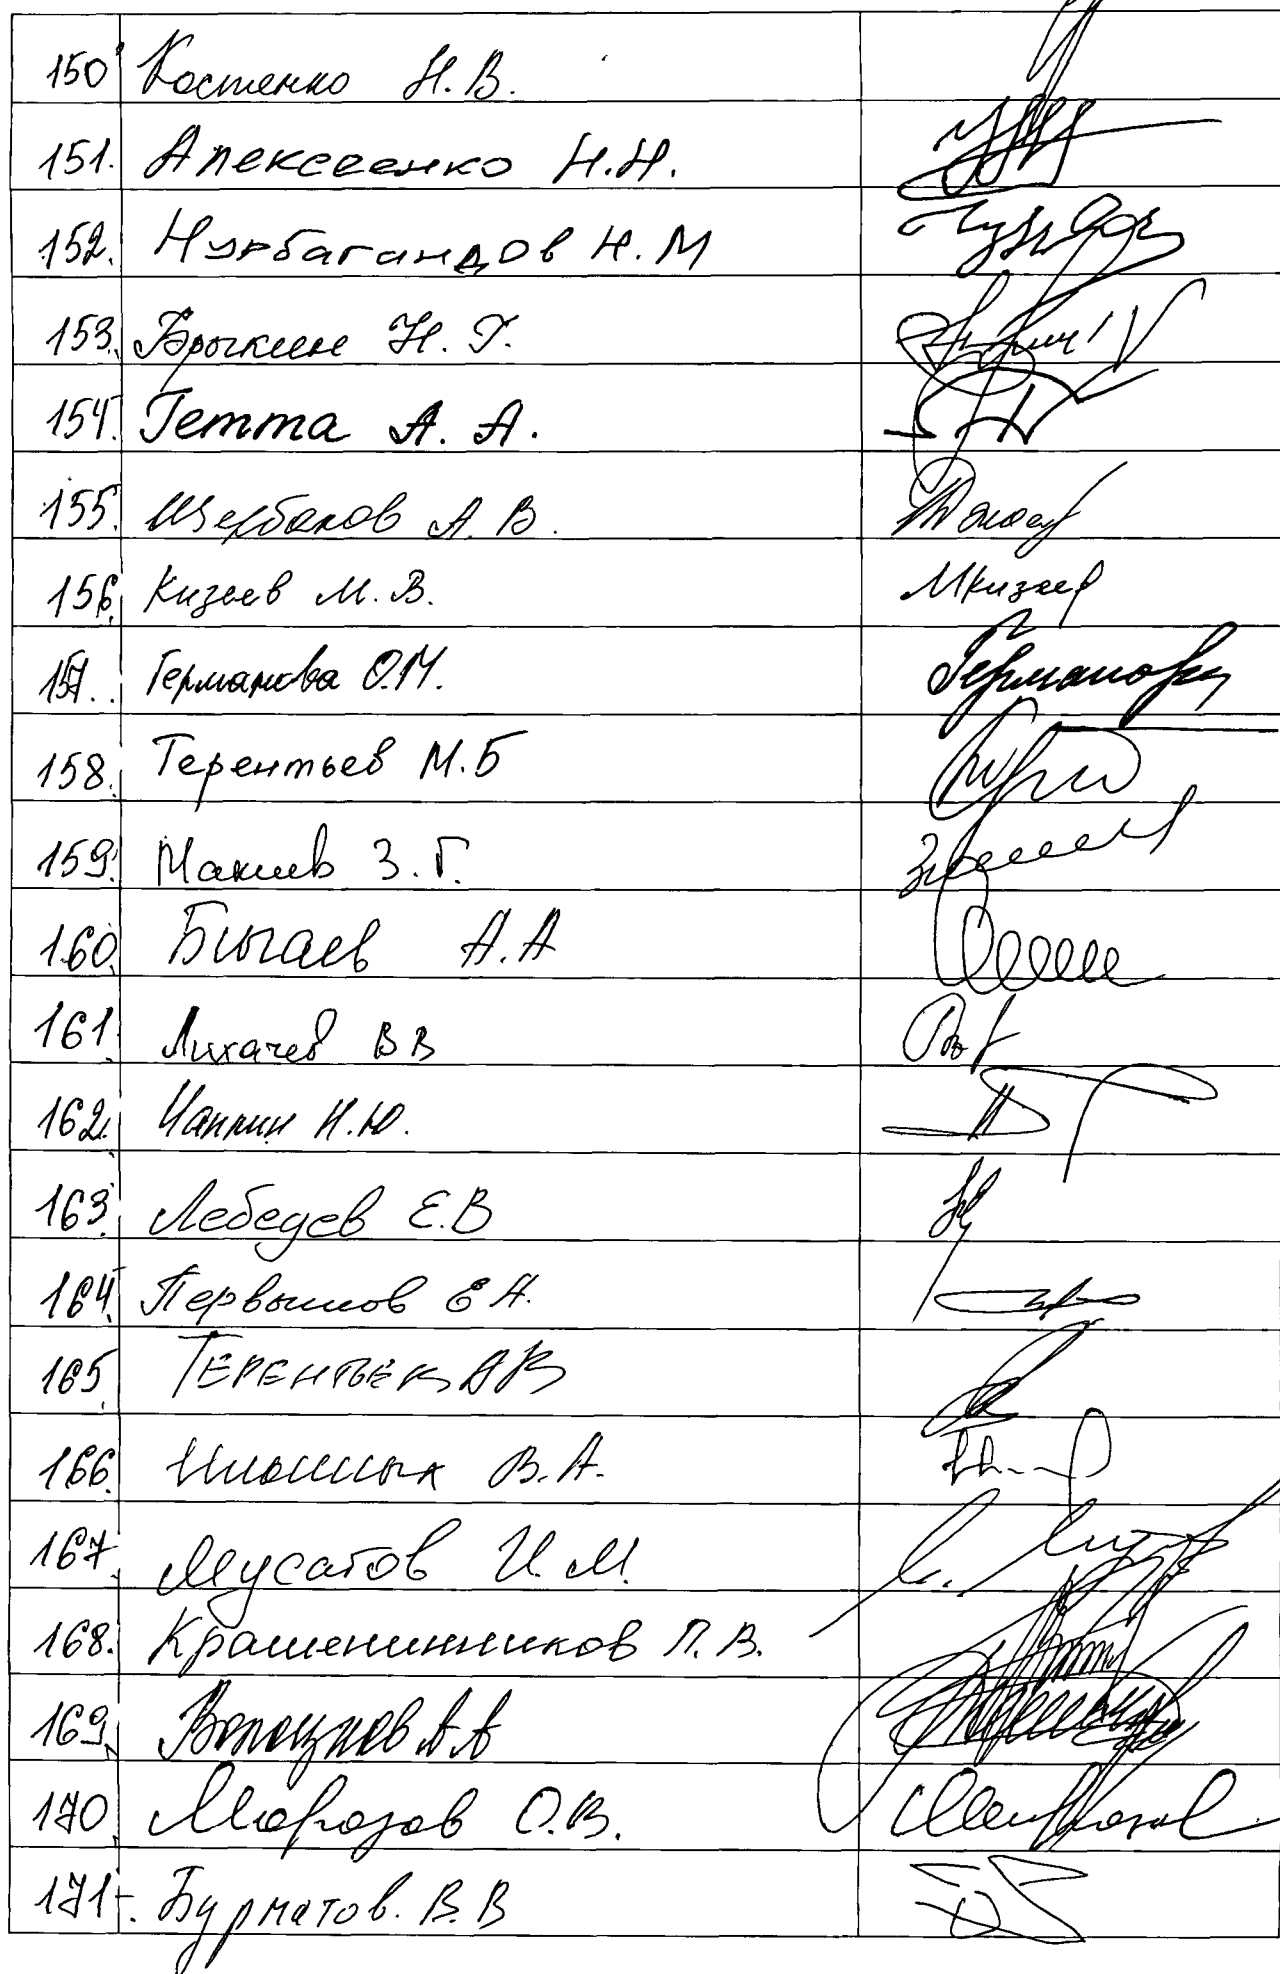 150 Костенко Н.В.
151. Алексеенко Н.Н.
152. Нурбагандов Н.М
153. Брыкин Н.Г.
154. Гетта А.А.
155. Щербаков А.В.
156. Кизеев М.В. МКизеев
157. Германова О.М. Германова
158. Терентьев М.Б
159. Макиев З.Г.
160. Бигаев А.А
161. Лихачев ВВ
162. Чаплин Н.Ю.
163. Лебедев Е.В
164. Первышов Е А.
165. ТЕРЕНТЬЕВ АВ
166. В.А.
167. Мусатов И.М.
168. Крашенинников П.В.
169. А А
170. Морозов О.В. Морозов
171. Бурматов.В.В